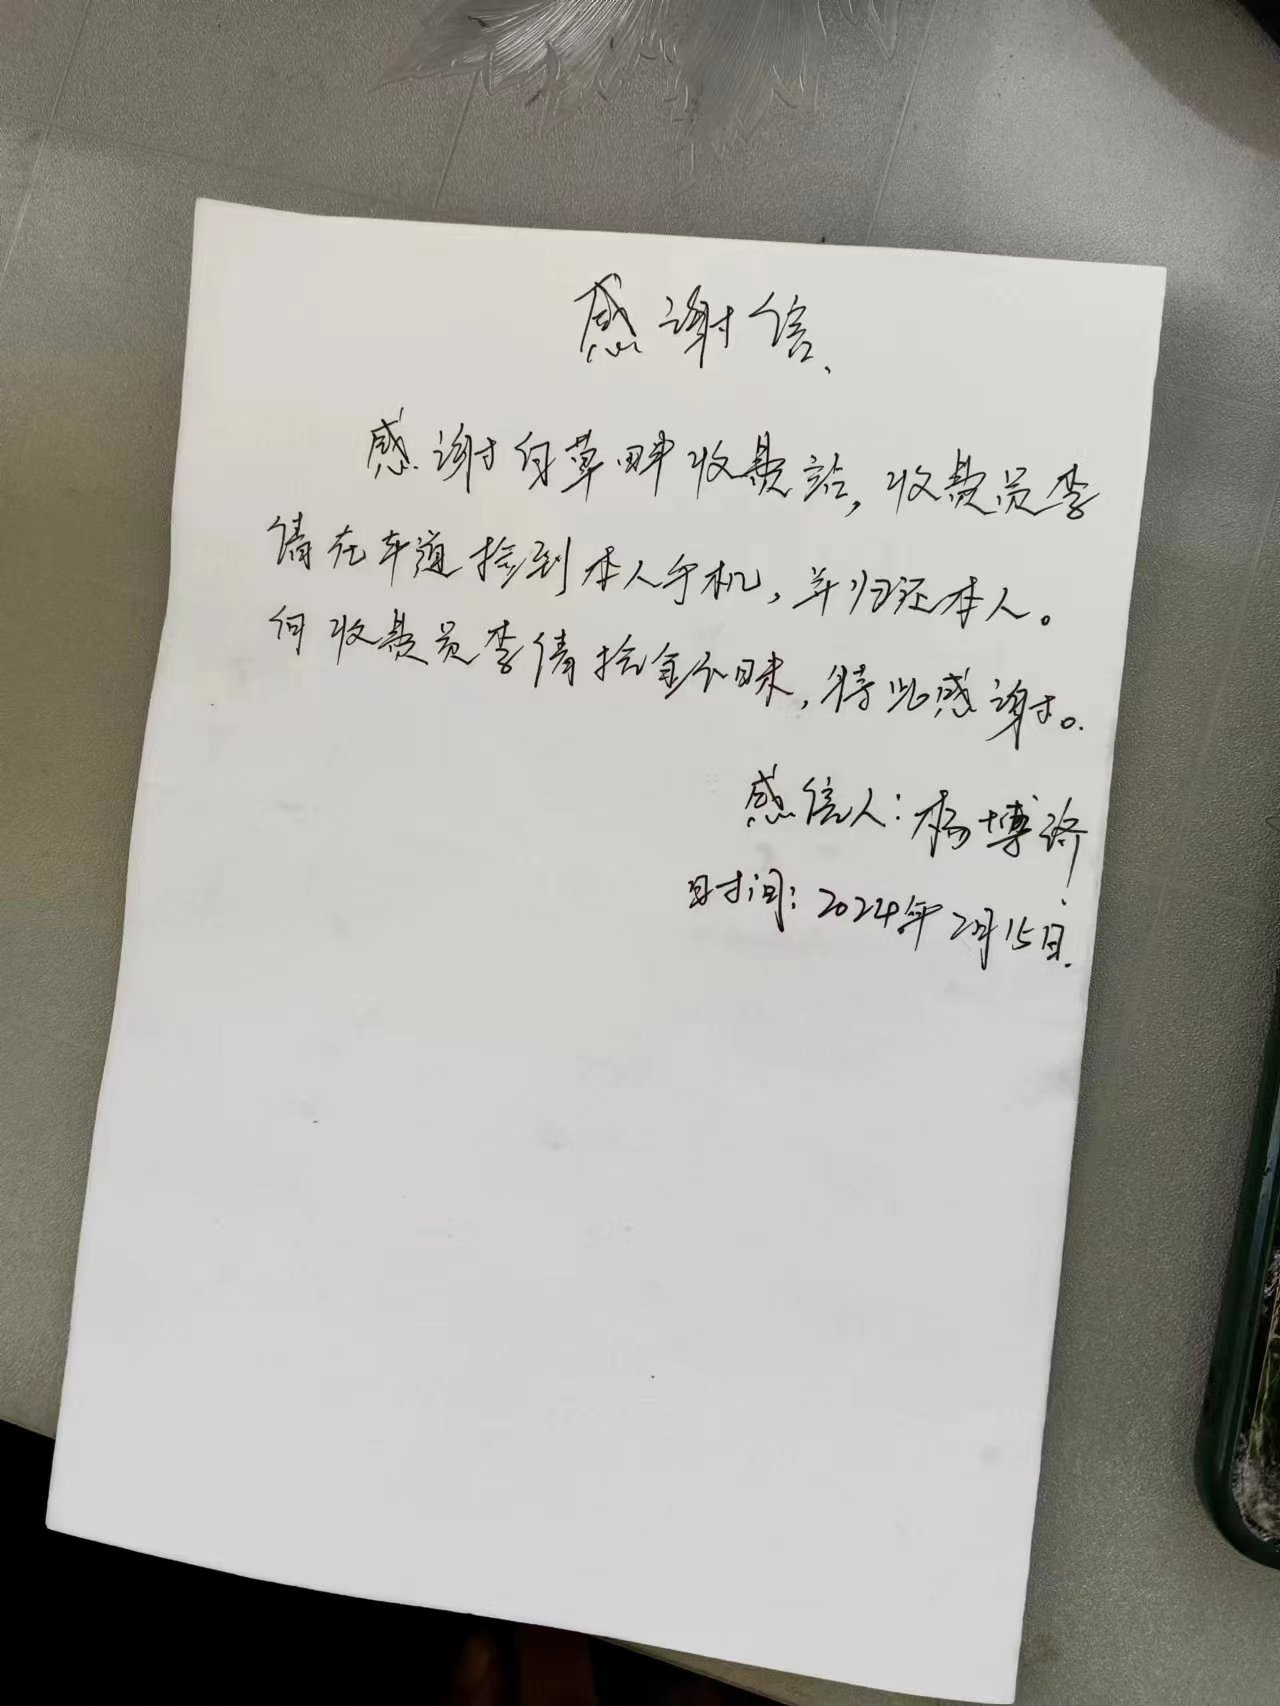 感谢信.
感谢白草畔收费站,收费员李
倩在车道捡到本人手机,并归还本人。
向收费员李倩拾金不昧,特此感谢。
感信人:杨博
时间:2024年2月15日.